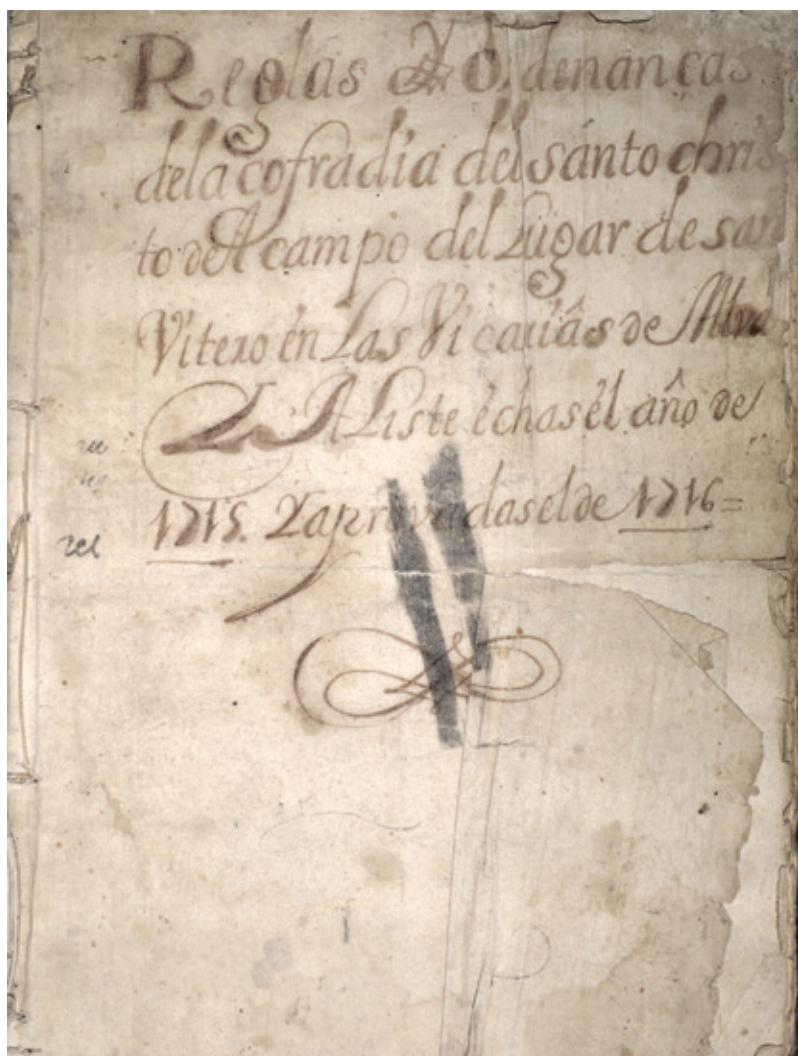 Reglas Y Ordenanças
dela cofradia del santo chris
to del campo del Lugar de san
Vitero en Las Vicarías de Alva
Y AListe echas el año de
1715. Y aprovadas el de 1716=